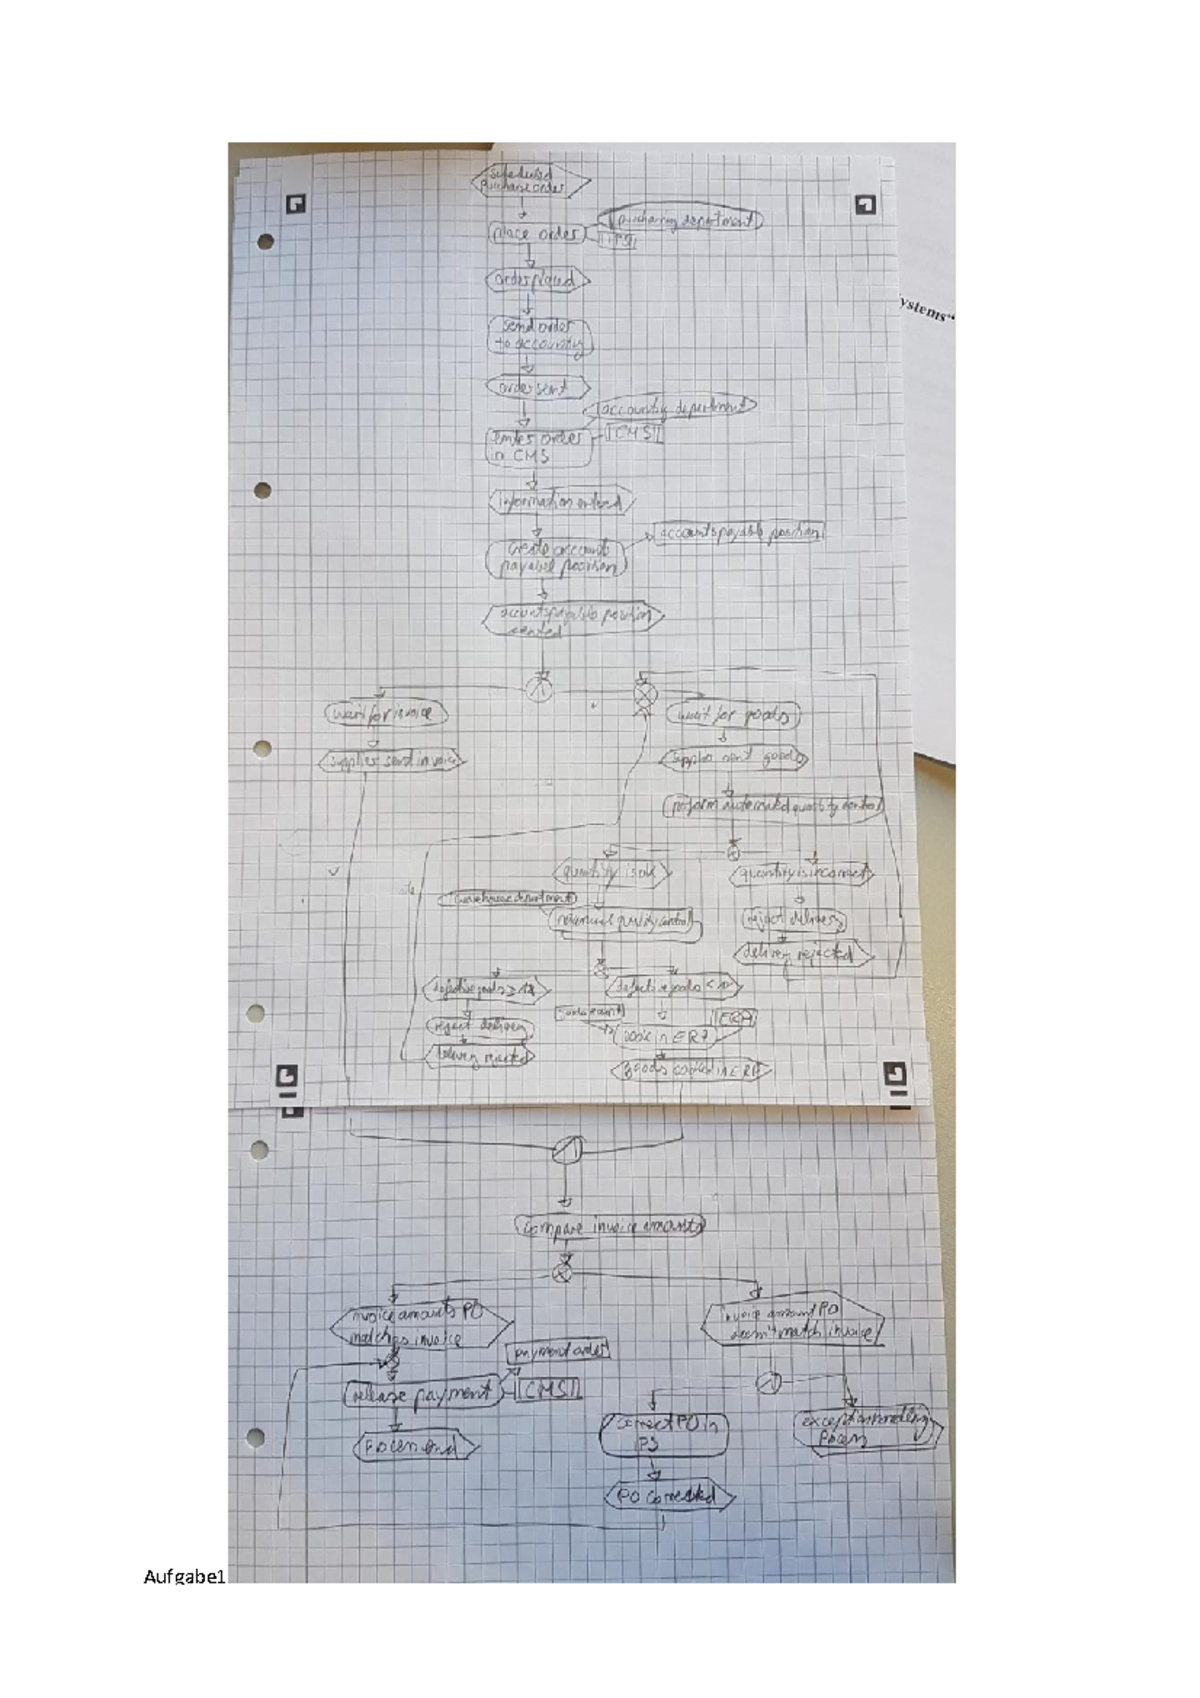 scheduled
purchase order
purchasing department
place order
IPS
order placed
send order
to accounting
order sent
accounting department
enter order
in CMS
CMS
information entered
accounts payable position
create accounts
payabel position
accounts payable position
created
wait for invoice
wait for goods
supplier send invoice
supplier sent goods
perform automated quantity control
quantity is ok
quantity is incorrect
warehouse department
manual quality control
reject delivery
delivery rejected
defective goods ≥ 1%
defective goods <
ERP
reject delivery
book in ERP
delivery rejected
goods booked in ERP
ystems“
compare invoice amounts
invoice amounts PO
matches invoice
invoice amount PO
doesn't match invoice
payment order
release payment
CMS
correct PO in
IPS
exception handling
Process
PO corrected
Aufgabe1